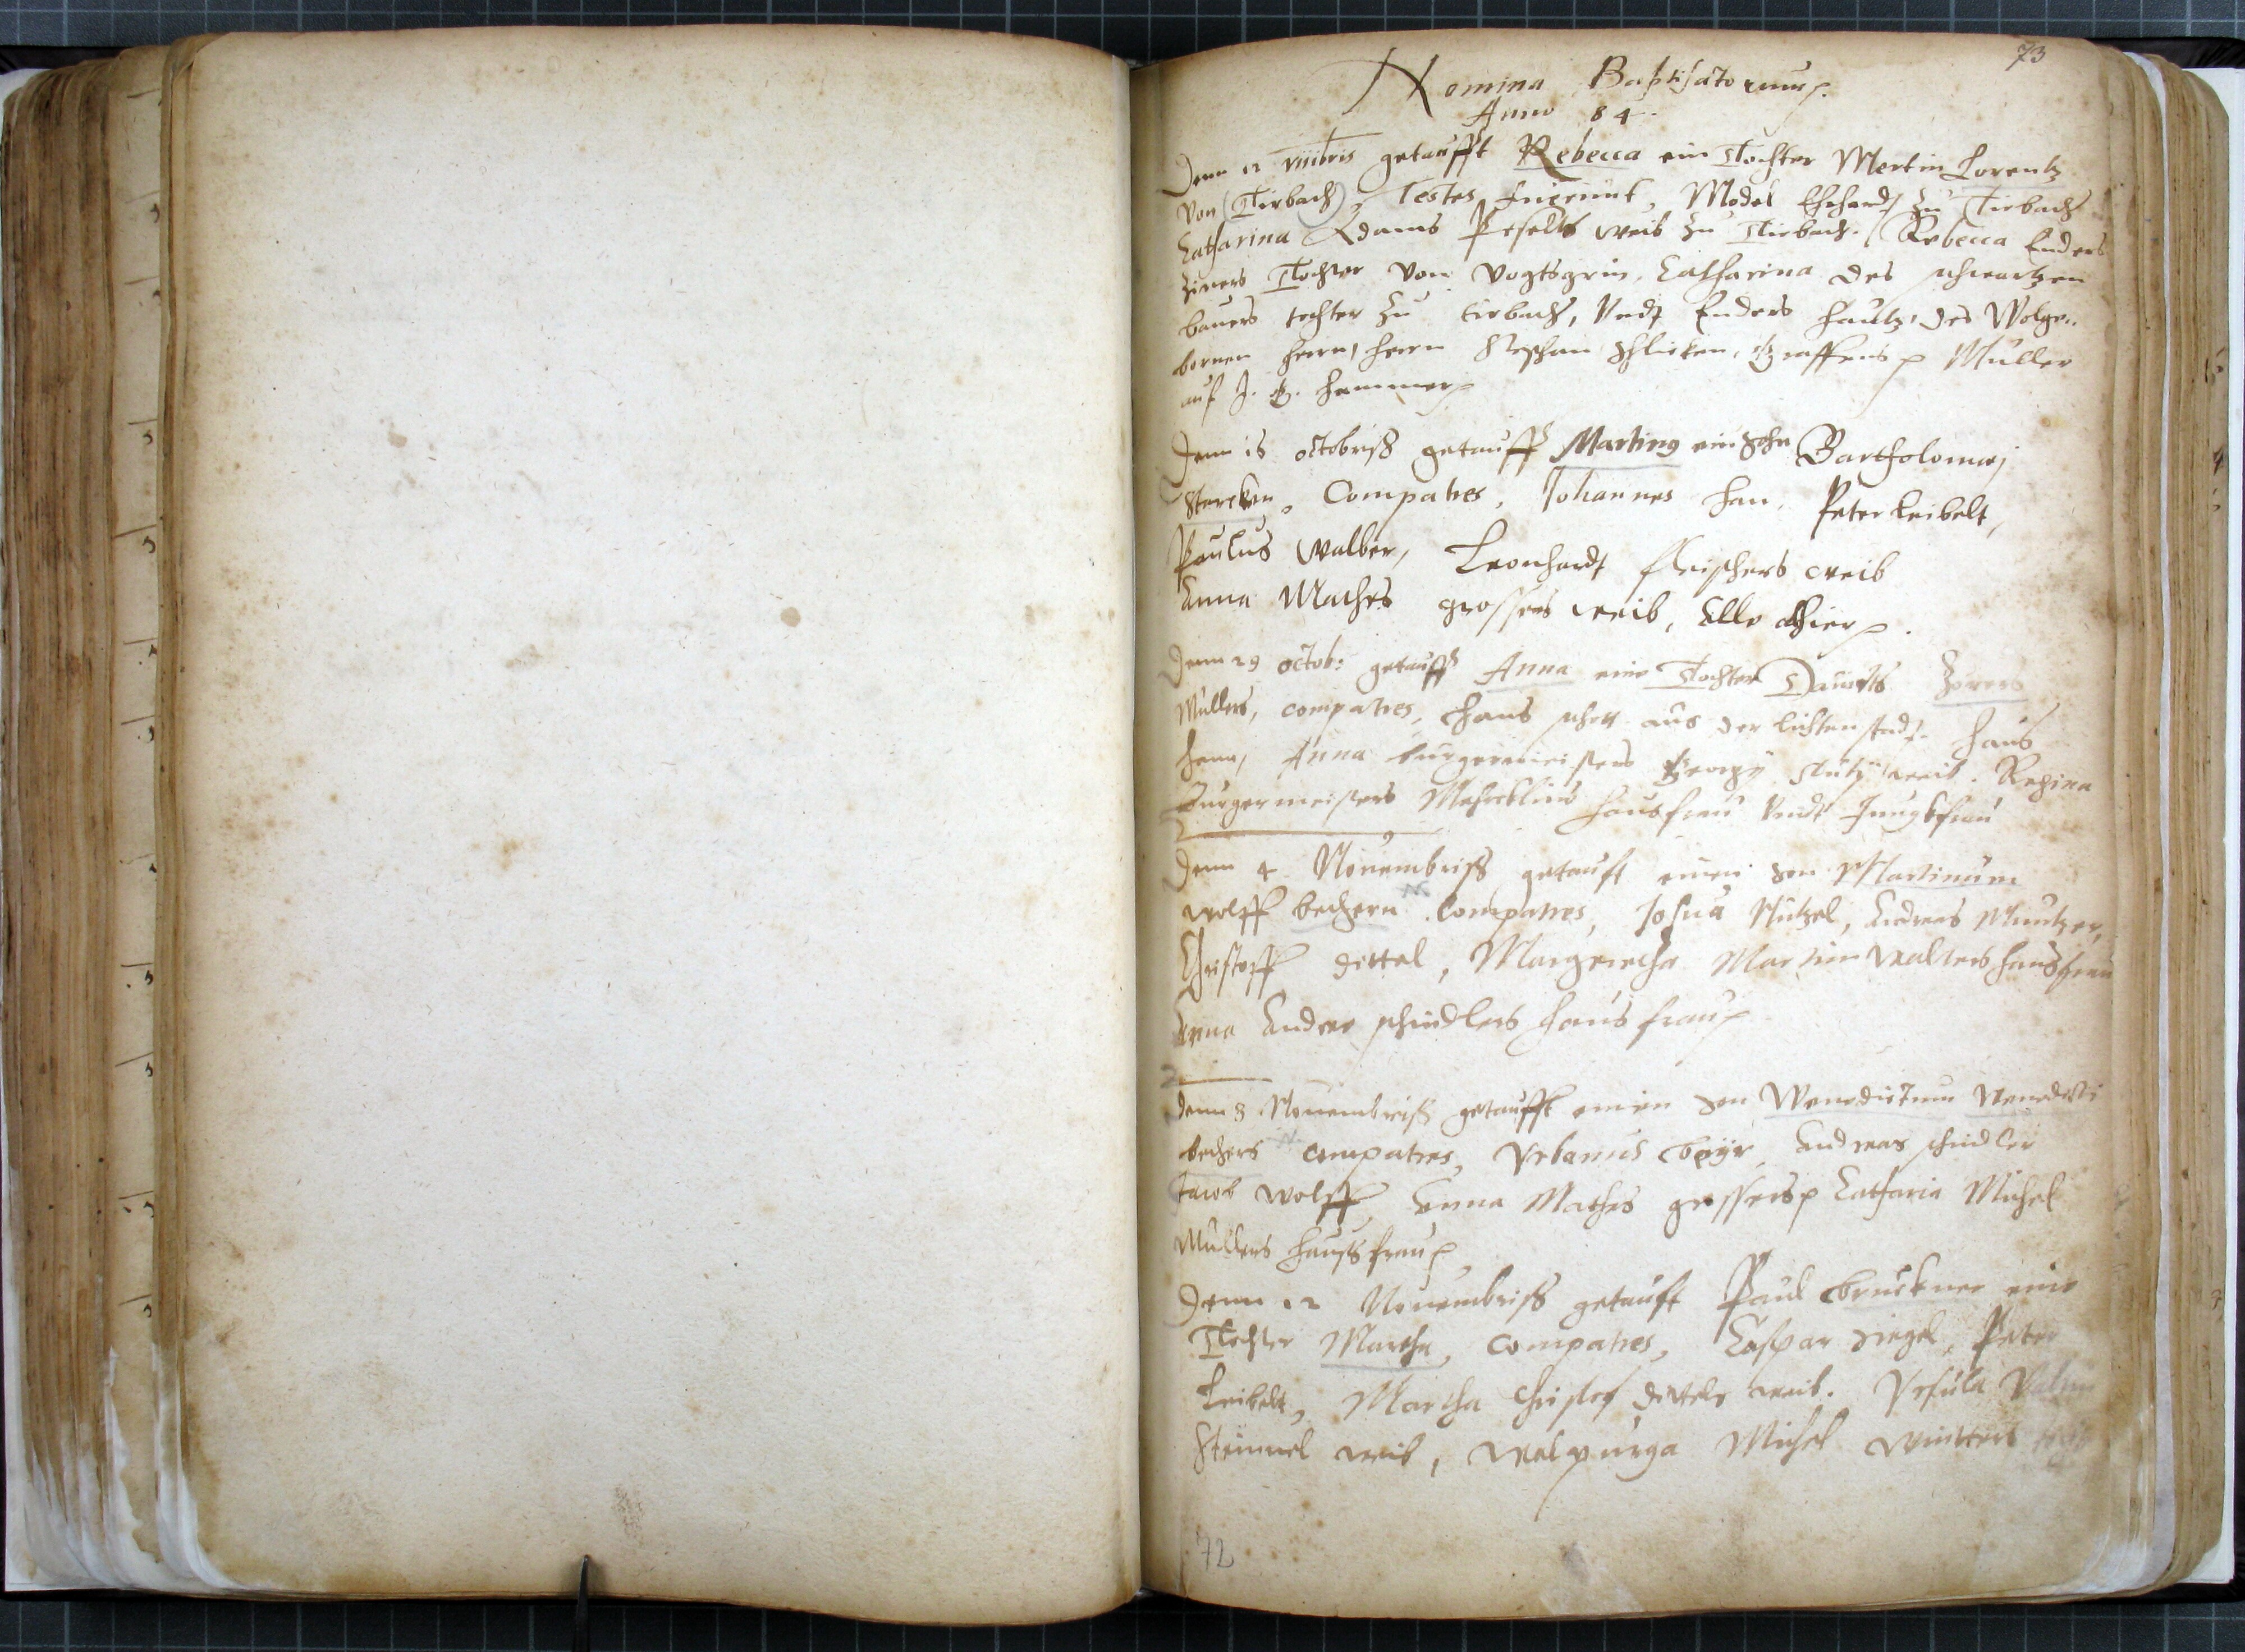 73
Nomina Baptisatorum.
Anno 84.
Denn 12 viiibris getaufft Rebecca ein Tochter Mertin Lorentz
von (Tirbach), Testes fuerunt, Model Ehrhardt zu Tirbach
Catharina Adams Peselts weib zu Tirbach. Rebecca Enders
Tochter von Vogtsgrün, Catharina des schwartzen
bauers tochter zu tirbach, Vndt Enders Hautz, des Wolge..
bornen herrn, herrn Stephan Schlicken, Graffens Müller
auf J. G. hammer
Denn 18 octobriß getaufft Martinus ein Sohn Bartholomaei
Starcken, Compatres, Johannes Han, Peter Leibelt,
Paulus Walber, Leonhardt fleischers weib
Anna Mathes grossers weib, Alle
Denn 29 octob: getaufft Anna eine Tochter Dauidts
Müllers, compatres, Hans aus der lichtenstadt. Hans
Anna burgermeisters Georgÿ weib. Regina
Burgermeisters hausfrau Vndt Jungkfrau
Denn 4 Nouembriß getauft einen son Martinum
wolff bechern. Compatres, Josua Nützel, Andreas Müntzer,
Christoff dittel, Margeretha Martin walters hausfrau
Anna Andree schindlers hausfrau
denn 8 Nouembriß getaufft einen son Wenedictum Wenedicti
bechers compatres, Vrbanus beÿr, Andreas schindler
Jacob wolff, Anna Mathes grossers Catharia Michel
Müllers haußfrau
Denn 12 Nouembriß getauft Paul bruckner eine
Tochter Martha, compatres, Caspar ziegel, Peter
Leibelt, Martha Christof dittels weib. Vrsula
Steinnel weib, walpurga Michel winters
72